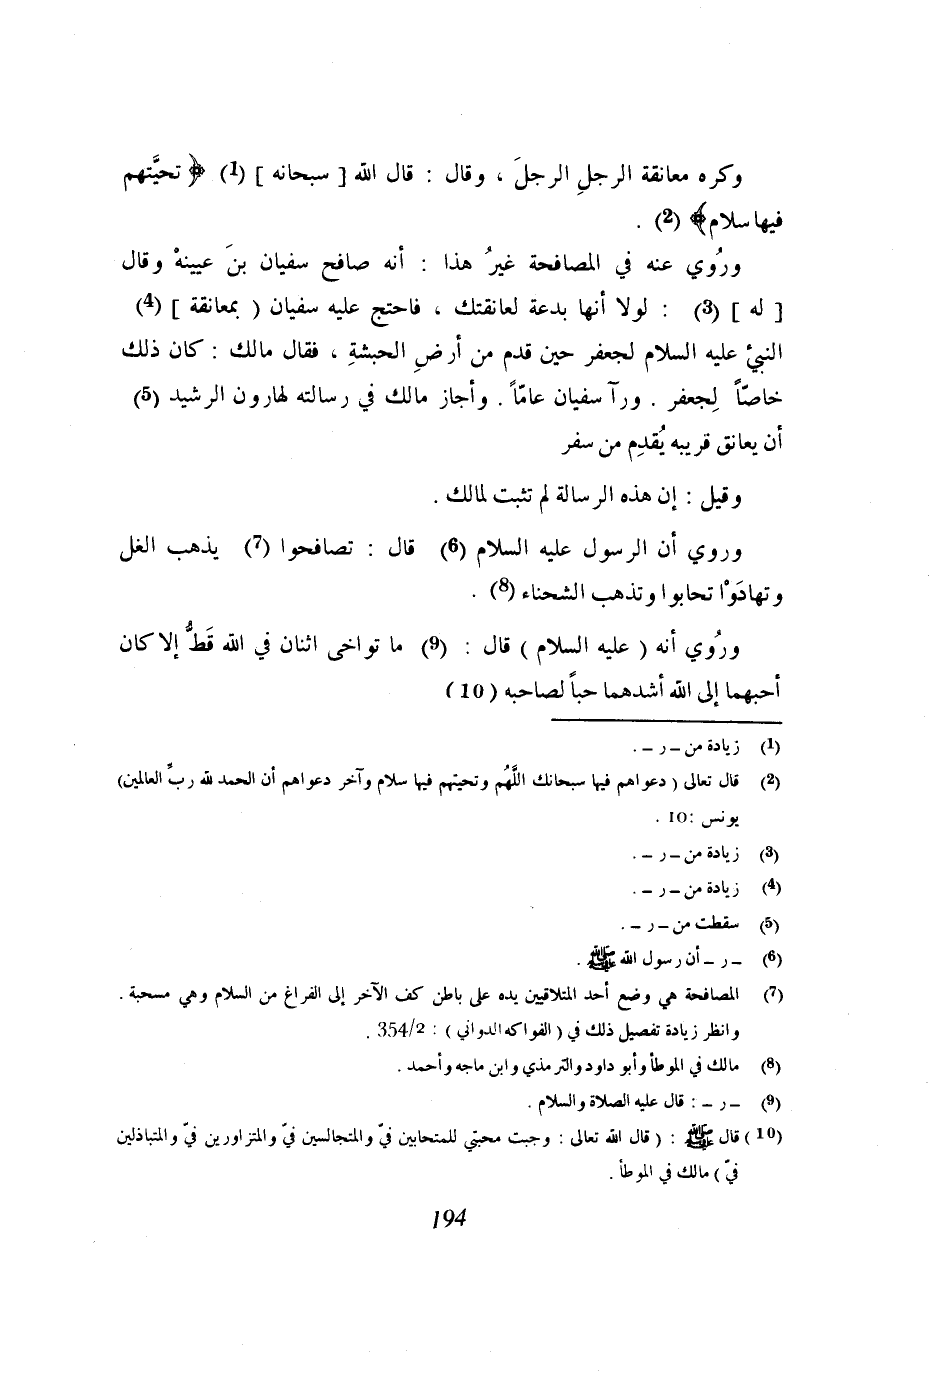 وكره معانقة الرجلِ الرجلَ ، وقال : قال الله [ سبحانه ] (1) ﴿ تحيَّتهم
فيها سلام﴾ (2) .
ورُوي عنه في المصافحة غيرُ هذا : أنه صافح سفيان بنَ عيينهْ وقال
[ له ] (3) : لولا أنها بدعة لعانقتك ، فاحتج عليه سفيان ( بمعانقة ] (4)
النبيْ عليه السلام لجعفر حين قدم من أرضِ الحبشةِ ، فقال مالك : كان ذلك
خاصّاً لِجعفر . ورآ سفيان عامّاً . وأجاز مالك في رسالته لهارون الرشيد (5)
أن يعانق قريبه يُقدِم من سفر
وقيل : إن هذه الرسالة لم تثبت لمالك .
وروي أن الرسول عليه السلام (6) قال : تصافحوا (7) يذهب الغل
وتهادَوْا تحابوا وتذهب الشحناء (8) .
ورُوي أنه ( عليه السلام ) قال : (9) ما تواخى اثنان في الله قَطُّ إلا كان
أحبهما إلى الله أشدهما حباً لصاحبه (10)
(1) زيادة من – ر – .
(2) قال تعالى ( دعواهم فيها سبحانك اللَّهُم وتحيتهم فيها سلام وآخر دعواهم أن الحمد لله ربِّ العالمين)
يونس :10 .
(3) زيادة من – ر – .
(4) زيادة من – ر – .
(5) سقطت من – ر – .
(6) – ر – أن رسول الله ﷺ .
(7) المصافحة هي وضع أحد المتلاقيين يده على باطن كف الآخر إلى الفراغ من السلام وهي مسحبة .
وانظر زيادة تفصيل ذلك في ( الفواكه الدواني ) : 354/2 .
(8) مالك في الموطأ وأبو داود والترمذي وابن ماجه وأحمد .
(9) – ر – : قال عليه الصلاة والسلام .
(10) قال ﷺ : ( قال الله تعالى : وجبت محبتي للمتحابين فيّ والمتجالسين فيّ والمتزاورين فيّ والمتباذلين
فيّ ) مالك في الموطأ .
194